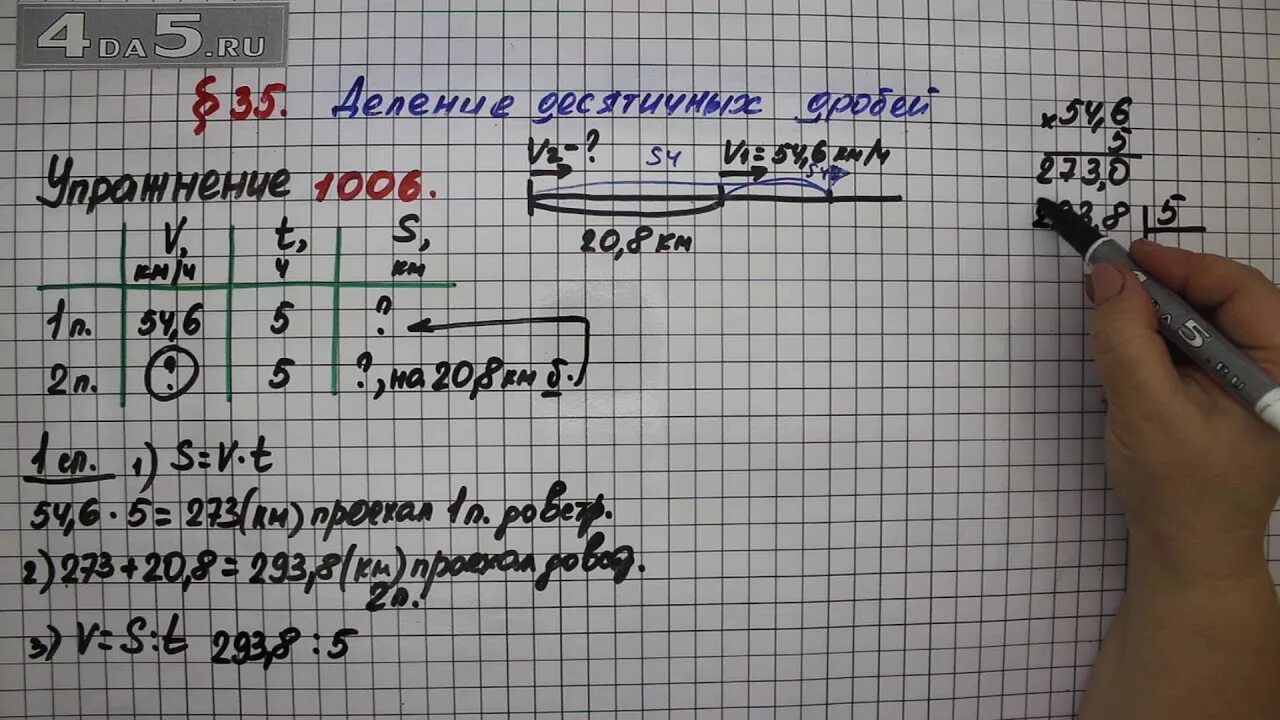 4DA5.RU
§ 35. Деление десятичных дробей
Упражнение 1006.
V2-? 5ч V1=54,6 км/ч
20,8 км
V, t, S,
км/ч ч км
1п. 54,6 5 ?
2п. ? 5 ?, на 20,8 км б.
1 сп. 1) S=V·t
54,6·5=273(км) проехал 1п. до встр.
2) 273+20,8=293,8(км) проехал
2п.
3) V=S:t 293,8:5
×54,6
5
273,0
293,8 5